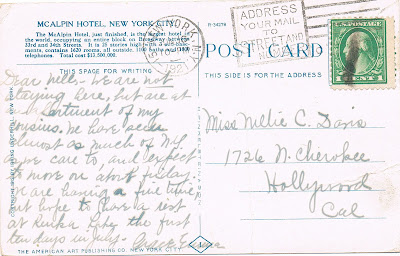 MCALPIN HOTEL, NEW YORK CITY
The McAlpin Hotel, just finished, is the largest hotel in
the world, occupying an entire block on Broadway between
33rd and 34th Streets. It is 25 stories high with 4 sub-base-
ments, contains 1620 rooms, all outside, 1100 baths and 1800
telephones. Total cost $13,500,000.
ADDRESS
YOUR MAIL
TO
STREET AND
POST CARD
THIS SPACE FOR WRITING
THIS SIDE IS FOR THE ADDRESS
U.S. POSTAGE
1 CENT 1
Dear Nell - We are not
staying here, but are at
apartment of my
cousins. We have seen
almost as much of N.Y.
we care to, and expect
to move on about Friday.
We are having a fine time,
but hope to have a rest
at Lake the first
ten days in July.
Miss Nellie C. Davis
1726 N. Cherokee
Hollywood
Cal
THE AMERICAN ART PUBLISHING CO., NEW YORK CITY